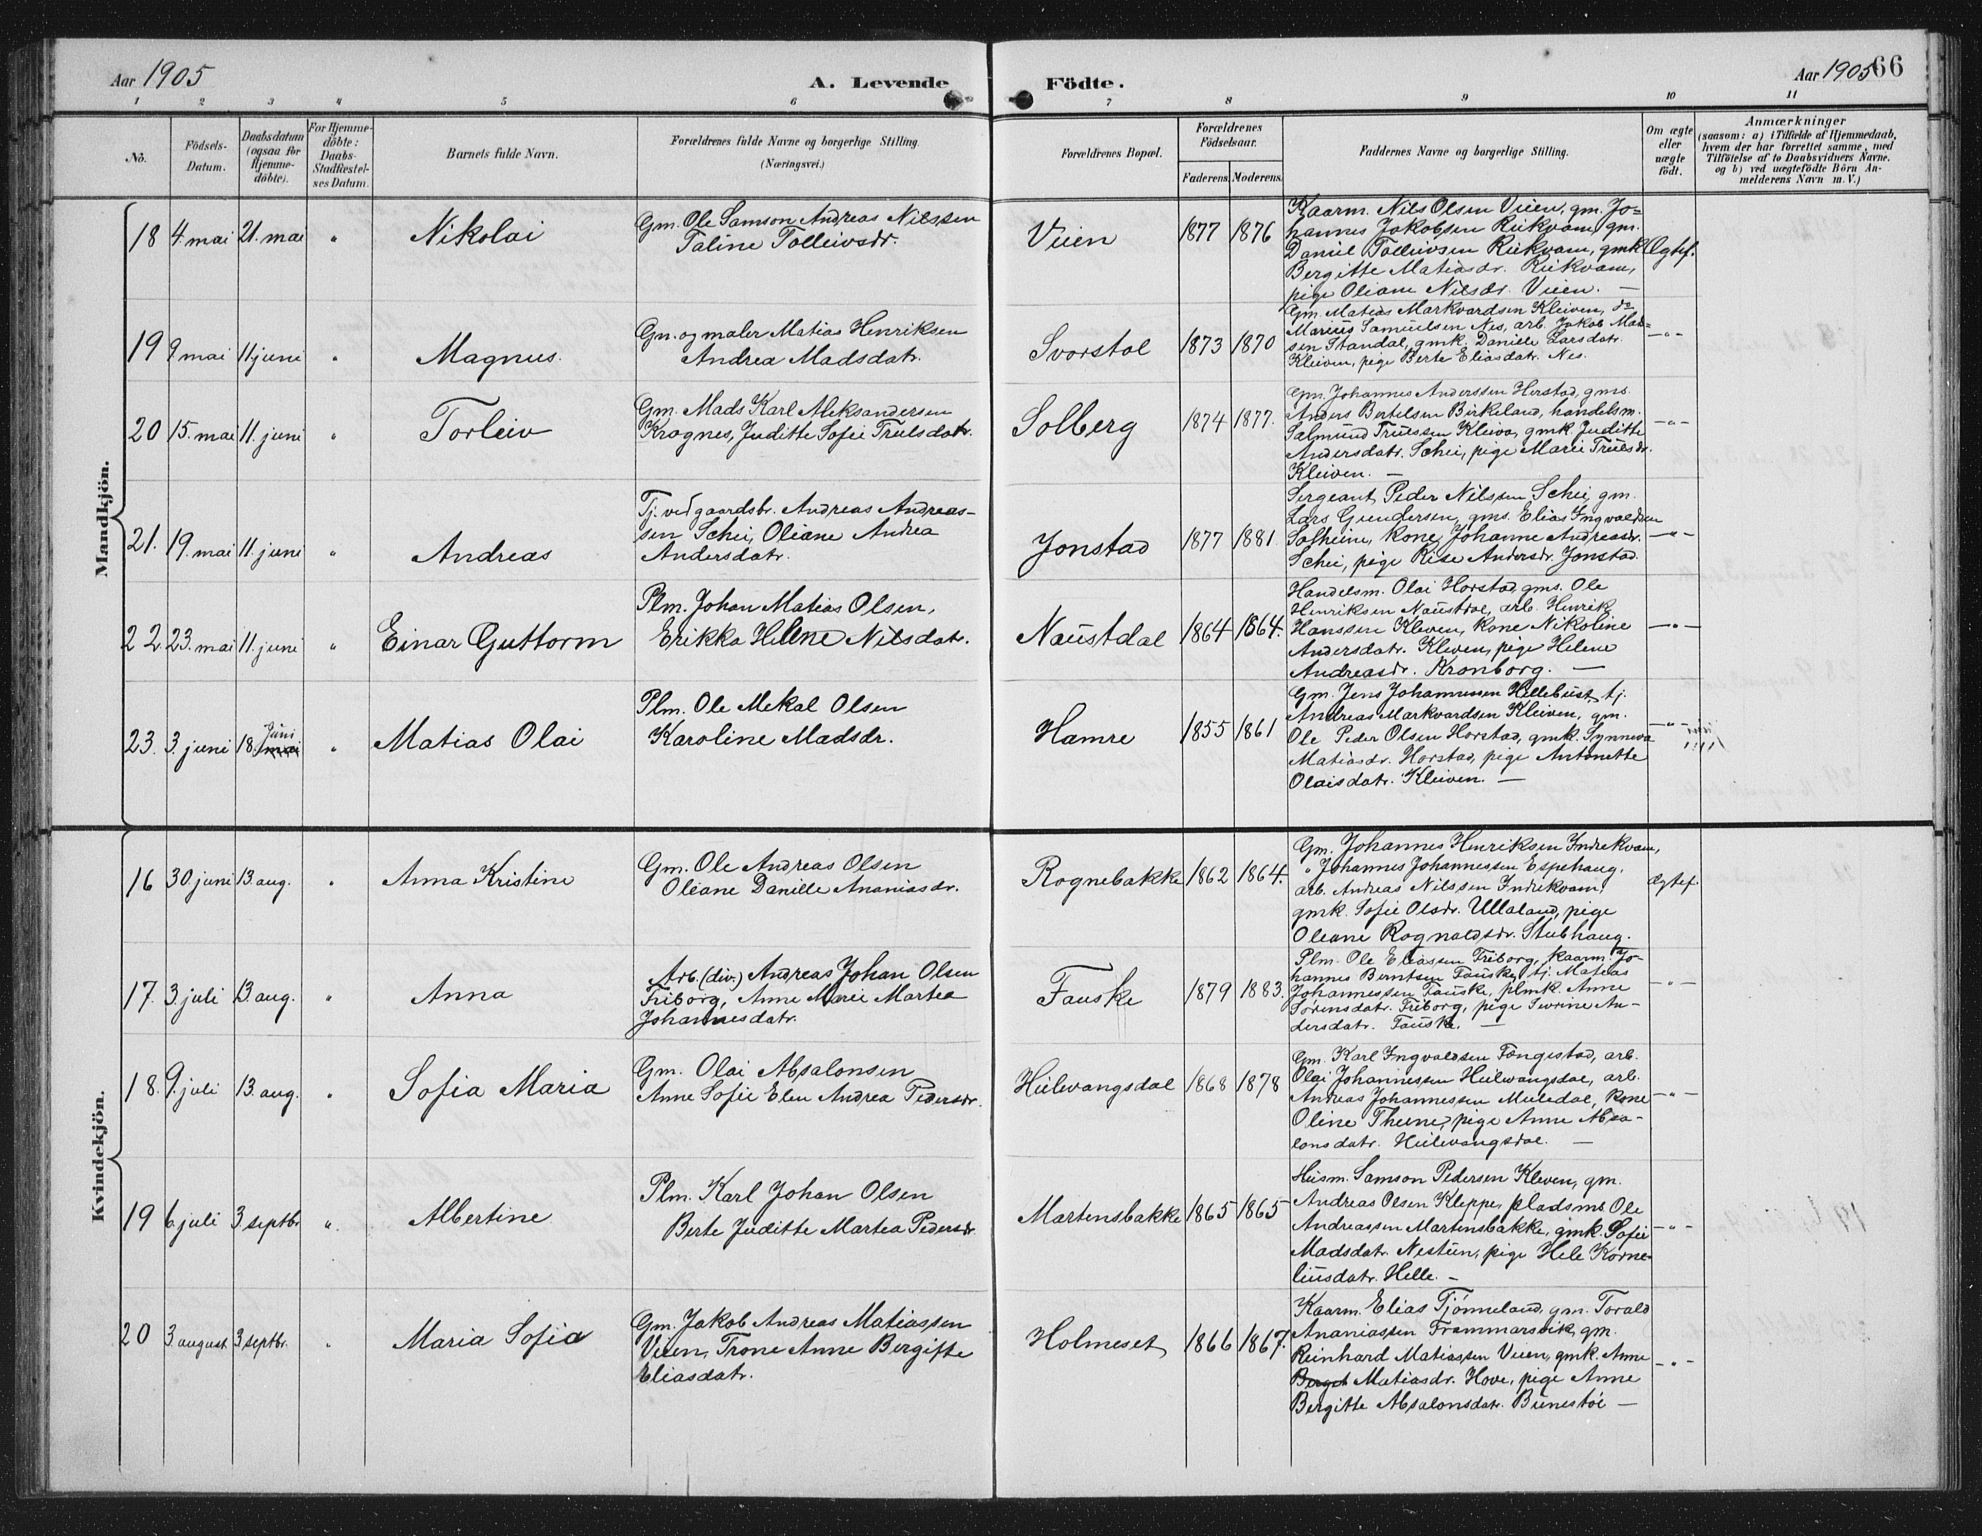 Aar 1905
A. Levende
Födte.
Aar 1905
66
1 2 3 4 5 6 7 8 9 10 11
No.
Födsels-
Datum.
Daabsdatum
(ogsaa for
Hjemme-
döbte).
For Hjemme-
döbte:
Daabs-
Stadfæstel-
ses Datum.
Barnets fulde Navn.
Forældrenes fulde Navne og borgerlige Stilling.
(Næringsvei.)
Forældrenes Bopæl.
Forældrenes
Födselsaar.
Faderens. Moderens.
Faddernes Navne og borgerlige Stilling.
Om ægte
eller
uægte
födt.
Anmærkninger
(saasom: a) i Tilfælde af Hjemmedaab,
hvem der har forrettet samme, med
Tilföielse af to Daabsvidners Navne.
og b) ved uægtefödte Börn An-
melderens Navn m. V.)
Mandkjön.
18 4. mai 21. mai " Nikolai
Gm. Ole Samson Andreas Nilssen
Taline Tolleivsdr.
Veien 1877 1876
Kaarm. Nils Olsen Veien, gm. Jo-
hannes Jakobsen Reikvam, gm.
Daniel Tolleivsen Reikvam, gmk.
Bergitte Matiasdr. Reikvam,
pige Oliane Nilsdr. Veien. —
Ægtef.
19 9 mai 11 juni " Magnus.
Gm. og maler Matias Henriksen
Andrea Madsdatr.
Svorstøl 1873 1870
Gm. Matias Markvardsen Kleiven, do
Marius Samuelsen Nes, arb. Jakob Mad-
sen Standal, gmk. Danille Larsdatr.
Kleiven, pige Berte Eliasdatr. Nes.
—"—
20 15. mai 11. juni " Torleiv
Gm. Mads Karl Aleksandersen
Krognes, Juditte Sofie Trulsdatr.
Solberg 1874 1877.
Gm. Johannes Anderssen Horstad, gms.
Anders Bertelsen Birkeland, handelsm.
Salmund Trulssen Kleiva, gmk. Juditte
Andersdatr. Schei, pige Marie Trulsdr.
Kleiven. —
—"—
21. 19. mai 11. juni " Andreas
Tj. ved gaardsbr. Andreas Andreas-
sen Schei, Oliane Andrea
Andersdatr.
Jonstad 1877 1881.
Sergeant Peder Nilssen Schei, gm.
Lars Gundersen, gms. Elias Ingvaldsen
Solheim, kone Johanne Andreasdr.
Schei, pige Rise Andersdr. Jonstad.
—"—
22. 23. mai 11. juni " Einar Guttorm
Plm. Johan Matias Olsen,
Erikka Helene Nilsdatr.
Naustdal 1864 1864.
Handelsm. Olai Horstad, gms. Ole
Henriksen Naustdal, arb. Henrik
Hanssen Kleven, kone Nikoline
Andersdatr. Kleven, pige Helene
Andreasdr. Kronborg. —
—"—
23. 3. juni 18. mai juni " Matias Olai
Plm. Ole Mekal Olsen
Karoline Madsdr.
Hamre 1855 1861
Gm. Jens Johannessen Hellebust, tj.
Andreas Markvardsen Kleiven, gm.
Ole Peder Olsen Horstad, gmk. Synneva
Matiasdr. Horstad, pige Antonette
Olaisdatr. Kleiven. —
—"—
Kvindekjön.
16 30 juni 13 aug. " Anna Kristine
Gm. Ole Andreas Olsen
Oliane Danille Ananiasdr.
Rognebakke 1862 1864.
Gm. Johannes Henriksen Indrekvam,
" Johannes Johannessen Espehaug.
arb. Andreas Nilssen Indrekvam,
gmk. Sofie Olsdr. Ullaland, pige
Oleane Rognaldsdr. Stubhaug.
Ægtef.
17. 3. juli 13. aug. " Anna
Arb. (div.) Andreas Johan Olsen
Friborg, Anne Marie Martea
Johannesdatr.
Fauske 1879 1883.
Plm. Ole Eliassen Friborg, Kaarm. Jo-
hannes Berntsen Fauske, tj. Matias
Johannessen Fauske, plmk. Anne
Sørensdatr. Friborg, pige Severine An-
dersdatr. Fauske. —
—"—
18. 9. juli 13. aug. " Sofia Maria
Gm. Olai Absalonsen
Anne Sofie Elen Andrea Pedersdr.
Heilevangsdal 1868 1878
Gm. Karl Ingvaldsen Tongestad, arb.
Olai Johannessen Heilevangsdal, arb.
Andreas Johannessen Muledal, kone
Oline Theene, pige Anne Absa-
lonsdatr. Heilevangsdal. —
—"—
19 6. juli 3. septbr. " Albertine
Plm. Karl Johan Olsen
Berte Juditte Martea Pedersdr.
Martensbakke 1865 1865
Husm. Samson Pedersen Kleven, gm.
Andreas Olsen Kleppe, pladsms. Ole
Andreassen Martensbakke, gmk. Sofie
Madsdatr. Nestun, pige Hele Korne-
liusdatr. Helle. —
—"—
20 3. august 3. septbr. " Maria Sofia
Gm. Jakob Andreas Matiassen
Veien, Trone Anne Bergitte
Eliasdatr.
Holmeset 1866 1867.
Kaarm. Elias Tjønneland, gm. Torald
Ananiassen Frammarsvik, gm.
Reinhard Matiassen Veien, gmk. Anne
Berget Matiasdr. Hove, pige Anne
Bergitte Absalonsdatr. Bunestøl —
—"—